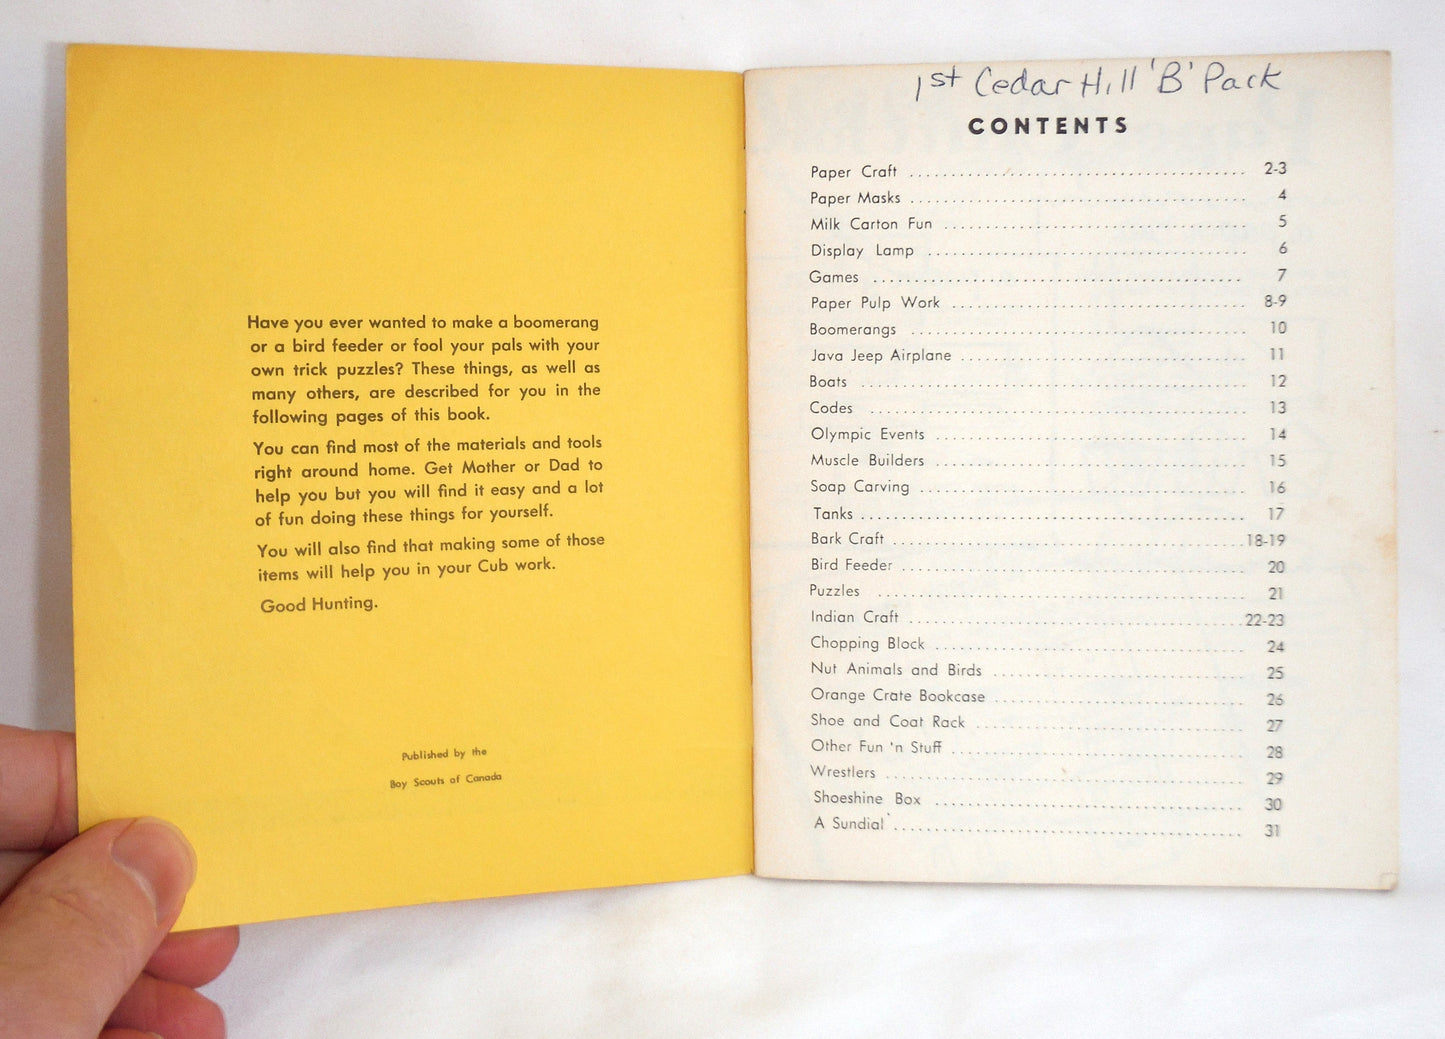 Have you ever wanted to make a boomerang
or a bird feeder or fool your pals with your
own trick puzzles? These things, as well as
many others, are described for you in the
following pages of this book.
You can find most of the materials and tools
right around home. Get Mother or Dad to
help you but you will find it easy and a lot
of fun doing these things for yourself.
You will also find that making some of those
items will help you in your Cub work.
Good Hunting.
Published by the
Boy Scouts of Canada
1st Cedar Hill 'B' Pack
CONTENTS
Paper Craft 2-3
Paper Masks 4
Milk Carton Fun 5
Display Lamp 6
Games 7
Paper Pulp Work 8-9
Boomerangs 10
Java Jeep Airplane 11
Boats 12
Codes 13
Olympic Events 14
Muscle Builders 15
Soap Carving 16
Tanks 17
Bark Craft 18-19
Bird Feeder 20
Puzzles 21
Indian Craft 22-23
Chopping Block 24
Nut Animals and Birds 25
Orange Crate Bookcase 26
Shoe and Coat Rack 27
Other Fun 'n Stuff 28
Wrestlers 29
Shoeshine Box 30
A Sundial 31